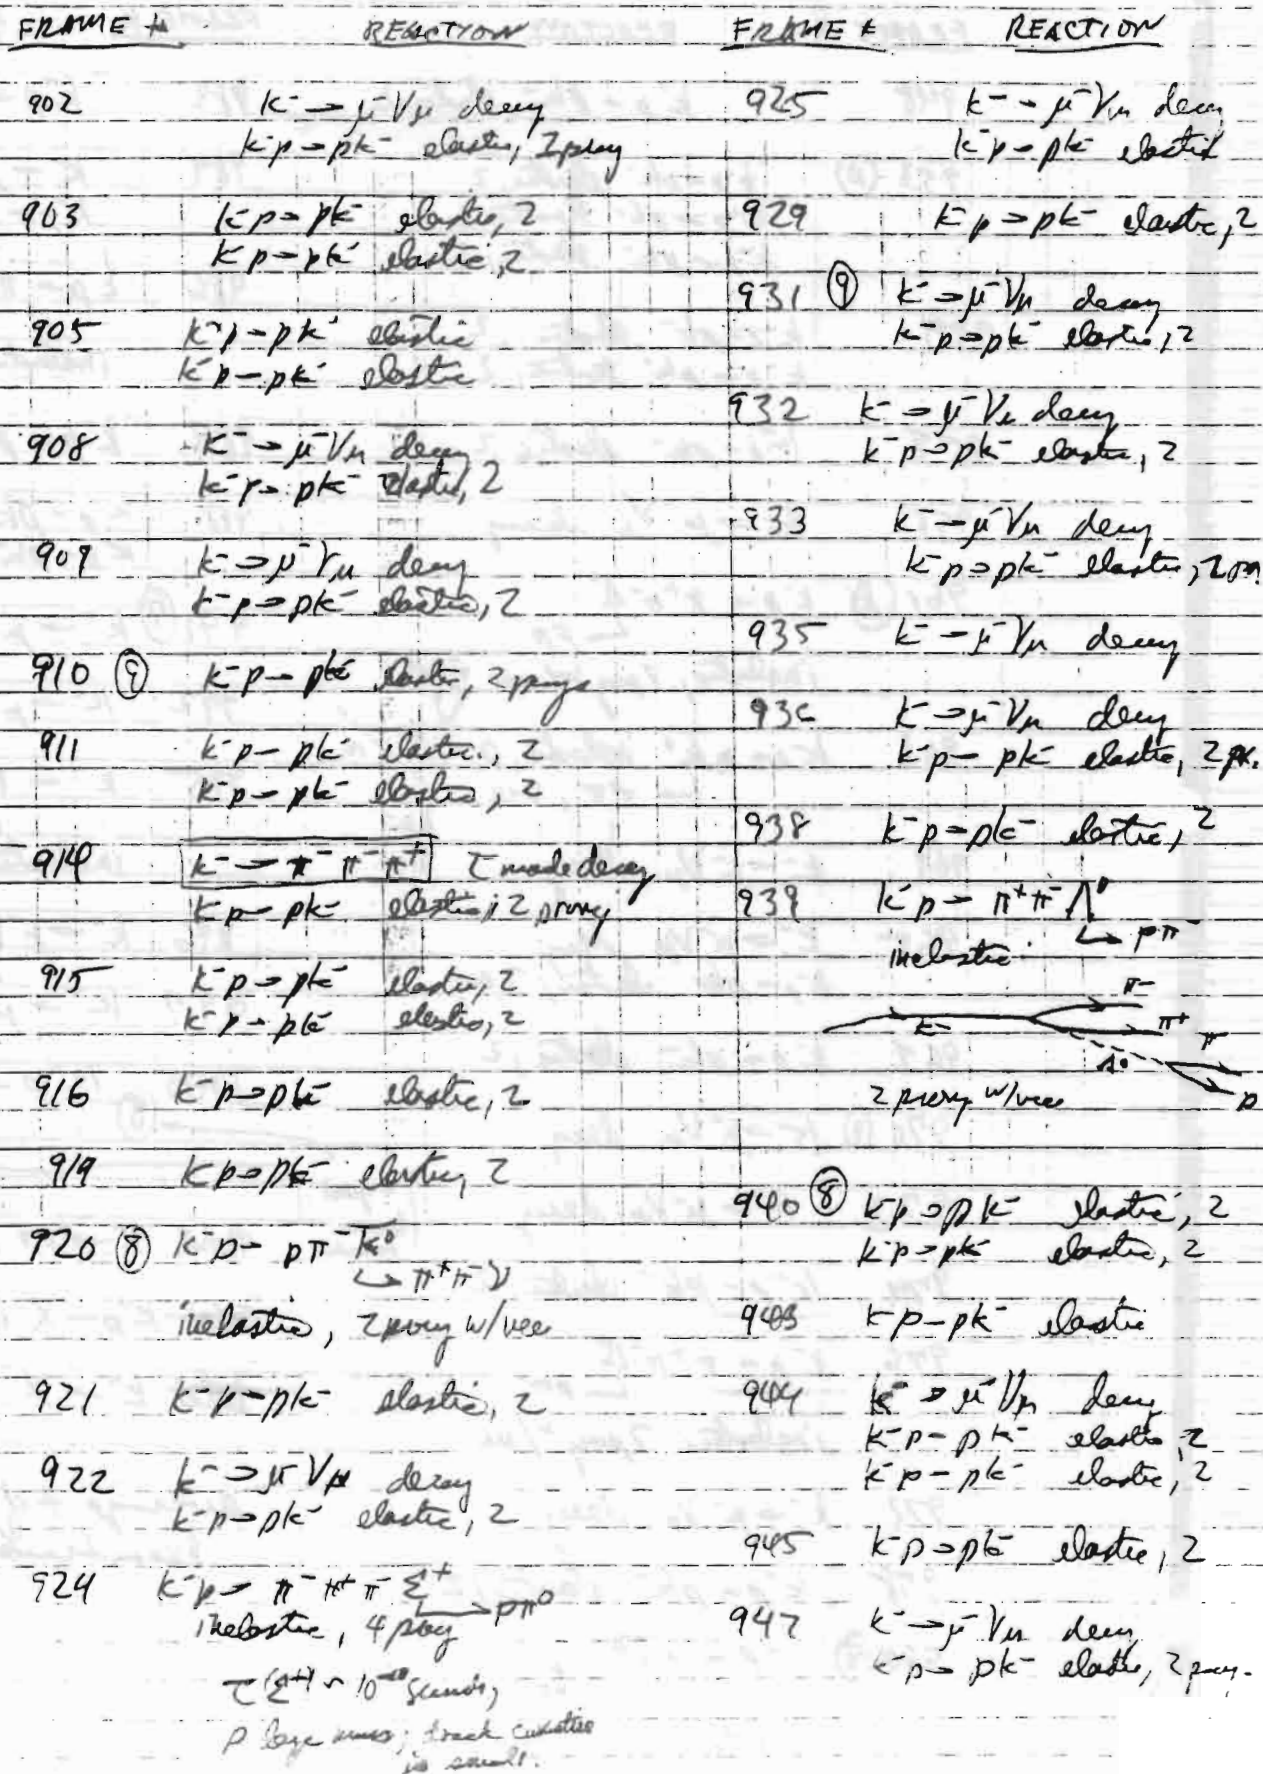 FRAME # REACTION
902 K⁻ → μ⁻ νμ decay
K⁻p → pK⁻ elastic, 2 prong
903 K⁻p → pK⁻ elastic, 2
K⁻p → pK⁻ elastic, 2
905 K⁻p → pK⁻ elastic
K⁻p → pK⁻ elastic
908 K⁻ → μ⁻ νμ decay
K⁻p → pK⁻ elastic, 2
909 K⁻ → μ⁻ νμ decay
K⁻p → pK⁻ elastic, 2
910 ⑨ K⁻p → pK⁻ elastic, 2 prongs
911 K⁻p → pK⁻ elastic, 2
K⁻p → pK⁻ elastic, 2
914 K⁻ → π⁻ π⁻ π⁺ τ mode decay
K⁻p → pK⁻ elastic, 2 prong
915 K⁻p → pK⁻ elastic, 2
K⁻p → pK⁻ elastic, 2
916 K⁻p → pK⁻ elastic, 2
919 K⁻p → pK⁻ elastic, 2
920 ⑧ K⁻p → pπ⁻ K̅⁰
↳ π⁺π⁻ν
inelastic, 2 prong w/vee
921 K⁻p → pK⁻ elastic, 2
922 K⁻ → μ⁻ νμ decay
K⁻p → pK⁻ elastic, 2
924 K⁻p → π⁻ π⁺ π⁻ Σ⁺
↳ pπ⁰
inelastic, 4 prong
τ(Σ⁺) ~ 10⁻¹⁰ seconds,
p large mass; track curvature
is small.
FRAME # REACTION
925 K⁻ → μ⁻ νμ decay
K⁻p → pK⁻ elastic
929 K⁻p → pK⁻ elastic, 2
931 ⑨ K⁻ → μ⁻ νμ decay
K⁻p → pK⁻ elastic, 2
932 K⁻ → μ⁻ νμ decay
K⁻p → pK⁻ elastic, 2
933 K⁻ → μ⁻ νμ decay
K⁻p → pK⁻ elastic, 2
935 K⁻ → μ⁻ νμ decay
936 K⁻ → μ⁻ νμ decay
K⁻p → pK⁻ elastic, 2 pr.
938 K⁻p → pK⁻ elastic, 2
939 K⁻p → π⁺π⁻ Λ⁰
↳ pπ⁻
inelastic
π⁻
K⁻ π⁺ π⁻
Λ⁰
p
2 prong w/vee
940 ⑧ K⁻p → pK⁻ elastic, 2
K⁻p → pK⁻ elastic, 2
943 K⁻p → pK⁻ elastic
944 K⁻ → μ⁻ νμ decay
K⁻p → pK⁻ elastic, 2
K⁻p → pK⁻ elastic, 2
945 K⁻p → pK⁻ elastic, 2
947 K⁻ → μ⁻ νμ decay
K⁻p → pK⁻ elastic, 2 prong.